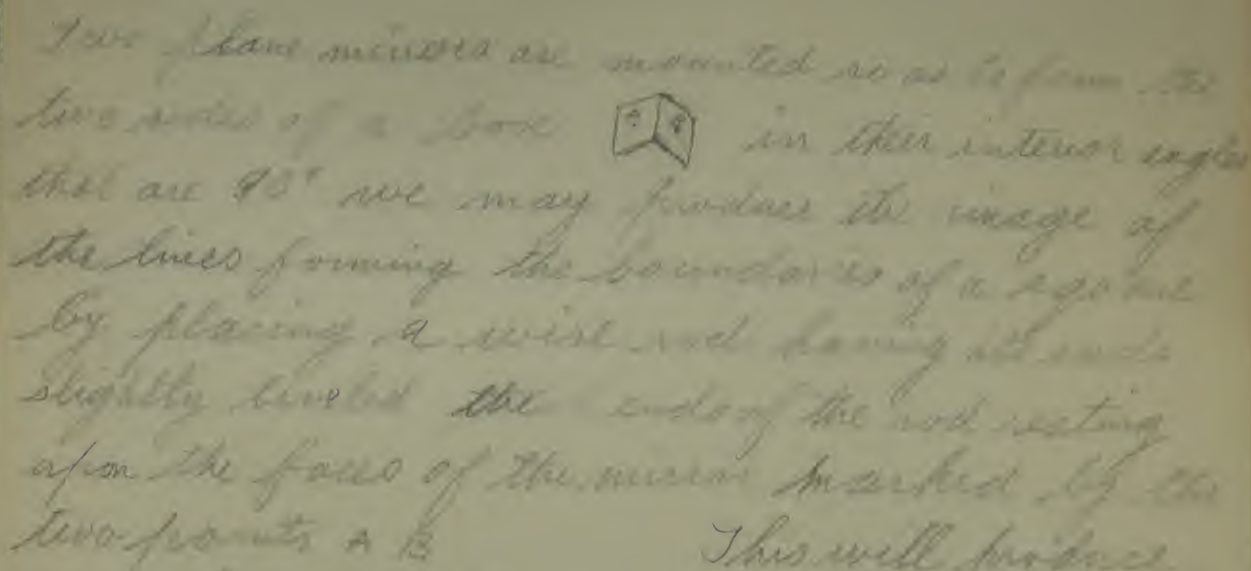 Two plane mirrors are mounted so as to form the
two sides of a box in their interior angles
that are 90° we may produce the image of
the lines forming the boundaries of a
by placing a wire rod having its ends
slightly beveled the ends of the rod resting
upon the faces of the mirror marked by the
two points A B This will produce